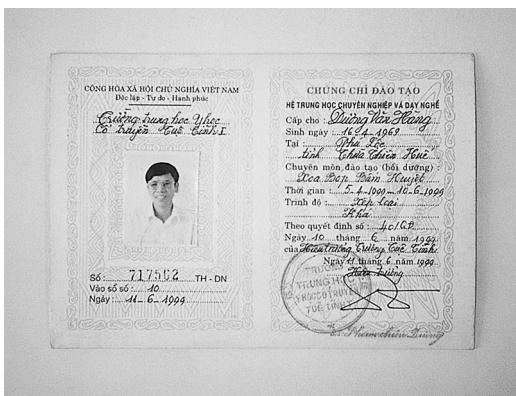 CỘNG HÒA XÃ HỘI CHỦ NGHĨA VIỆT NAM
Độc lập - Tự do - Hạnh phúc
Trường Trung học Y học
Cổ truyền Tuệ Tĩnh I
Số: 717502 TH - DN
Vào sổ số: 10
Ngày: 11-6-1999
CHỨNG CHỈ ĐÀO TẠO
HỆ TRUNG HỌC CHUYÊN NGHIỆP VÀ DẠY NGHỀ
Cấp cho: Dương Văn Hăng
Sinh ngày: 16-4-1969
Tại: Phú Lộc
tỉnh Thừa Thiên Huế
Chuyên môn đào tạo (bồi dưỡng):
Xoa Bóp Bấm Huyệt
Thời gian: 5-4-1999-10-6-1999
Trình độ: Xếp loại
Khá
Theo quyết định số: 401QĐ
Ngày 10 tháng 6 năm 1999
của Hiệu trưởng Trường Tuệ Tĩnh
Ngày 11 tháng 6 năm 1999
Hiệu trưởng
TRƯỜNG
TRUNG HỌC
Y HỌC CỔ TRUYỀN
TUỆ TĨNH